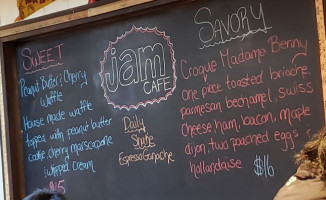 SWEET
Peanut Butter & Cherry
Waffle
House made waffle
topped with peanut butter
cookie, cherry marscapone
whipped cream
$15
jam
CAFE
Daily
Shine
Espresso Ganache
SAVORY
Croque Madame Benny
one piece toasted brioche,
parmesan bechamel, swiss
cheese ham, bacon, maple
dijon, two poached eggs
hollandaise $16